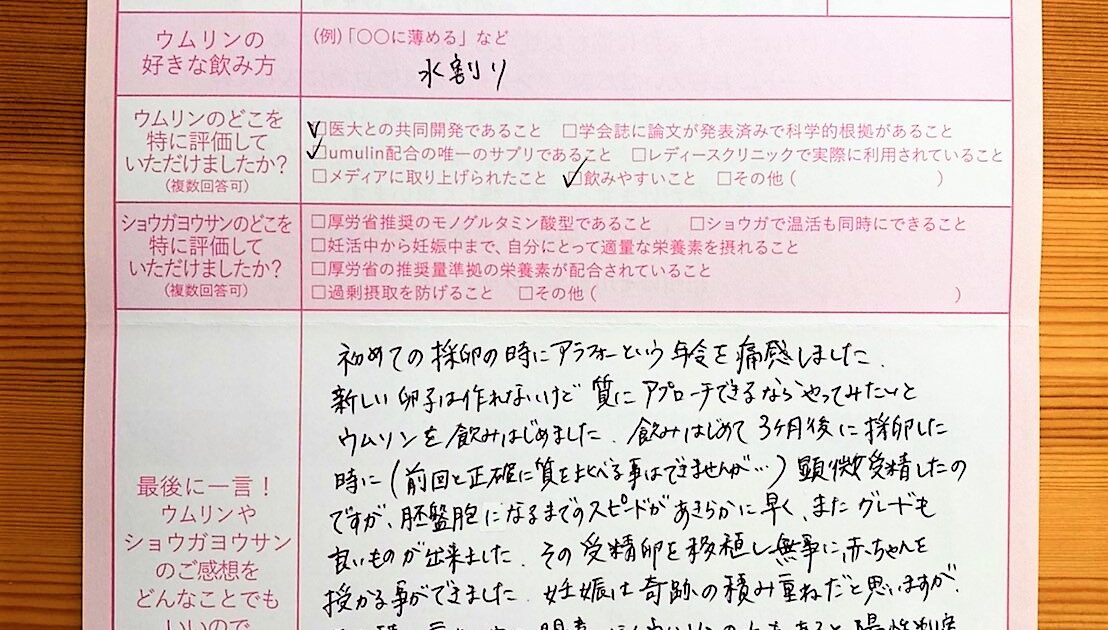 ウムリンの
好きな飲み方
(例)「〇〇に薄める」など
水割り
ウムリンのどこを
特に評価して
いただけましたか?
(複数回答可)
□医大との共同開発であること □学会誌に論文が発表済みで科学的根拠があること
□umulin配合の唯一のサプリであること □レディースクリニックで実際に利用されていること
□メディアに取り上げられたこと □飲みやすいこと □その他( )
ショウガヨウサンのどこを
特に評価して
いただけましたか?
(複数回答可)
□厚労省推奨のモノグルタミン酸型であること □ショウガで温活も同時にできること
□妊活中から妊娠中まで、自分にとって適量な栄養素を摂れること
□厚労省の推奨量準拠の栄養素が配合されていること
□過剰摂取を防げること □その他( )
最後に一言!
ウムリンや
ショウガヨウサン
のご感想を
どんなことでも
いいので
初めての採卵の時にアラフォーという年令を痛感しました.
新しい卵子は作れないけど質にアプローチできるならやってみたいと
ウムリンを飲みはじめました. 飲みはじめて3ヶ月後に採卵した
時に(前回と正確に質をくらべる事はできませんが…)顕微受精したの
ですが、胚盤胞になるまでのスピードがあきらかに早く、またグレードも
良いものが出来ました. その受精卵を移植し無事に赤ちゃんを
授かる事ができました. 妊娠は奇跡の積み重ねだと思いますが.